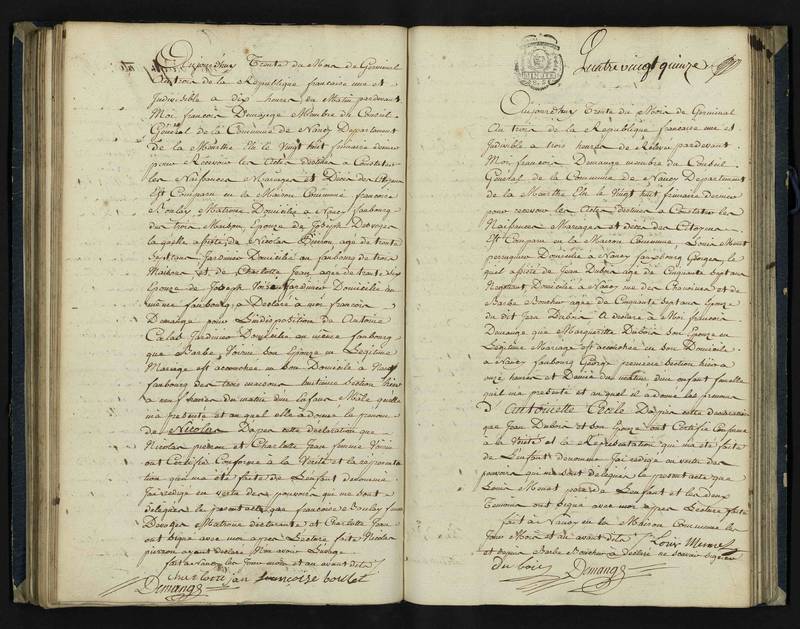 Aujourd'huy Trente du Mois de Germinal
L'an trois de la République française une et
Indivisible a dix heures du Matin pardevant
Moi françois Demange Membre du Conseil
Général de la Commune de Nancy Departement
de la Meurthe Elu le vingt huit frimaire dernier
pour Recevoir les Actes destinés a Constater
les Naissances Mariages et Décès des Citoyens
Est Comparu en la Maison Commune françoise
Boulay Matrone Domiciliée a Nancy faubourg
des trois Maisons, Epouse de Joseph Devoges
laquelle assistée de Nicolas Pierron, agé de trente
sept ans Jardinier Domicilié au faubourg des trois
Maisons et de Charlotte Jean agée de trente six
Epouse de Joseph Jardinier Domicilié au
même faubourg, a Déclaré à moi françois
Demange pour L'indisposition de Antoine
Jardinier Domicilié au même faubourg
que Barbe son Epouse en Legitime
Mariage est accouchée en son Domicile à Nancy
faubourg des trois maisons huitieme Section hier
a heures du matin d'un Enfant Mâle quelle
m'a présenté et auquel elle a donné le prenom
de Nicolas D'après cette déclaration que
Nicolas pierron et Charlotte Jean femme
ont Certifié Conforme à la Vérité et la représenta
tion qui m'a été faite de L'enfant dénommé
J'ai redigé en vertu des pouvoirs qui me sont
délégués le présent acte que françoise Boulay femme
Devoges Matrone déclarante et Charlotte Jean
ont signé avec moi apres Lecture faite Nicolas
pierron ayant déclaré Non avoir L'usage
fait a Nancy les Jour mois et an avant dits
charlotte jan francoise boulet
Demange
Quatre vingt quinze
Aujourd'huy Trente du Mois de Germinal
L'an trois de la République française une et
Indivisible a trois heures de Relevée pardevant
Moi françois Demange membre du Conseil
Général de la Commune de Nancy Departement
de la Meurthe Elu le Vingt huit frimaire dernier
pour recevoir les Actes destinés a Constater les
Naissances Mariages et décès des Citoyens
Est Comparu en la Maison Commune, Louis Menet
perruquier Domicilié à Nancy faubourg Georges, le
quel assisté de Jean Dubois agé de Cinquante Sept ans
Domicilié a Nancy rue des et de
Barbe Boucher agée de Cinquante sept ans Epouse
du dit Jean Dubois a declaré à Moi françois
Demange que Marguerite Dubois son Epouse en
Légitime Mariage est accouchée en son Domicile
a Nancy faubourg Georges premiere Section hier a
onze heures et Demie du matin d'un enfant femelle
qu'il m'a présenté et auquel il a donné les prenoms
d'Antoinette Cecile D'après cette déclaration
que Jean Dubois et son Epouse ont Certifié Conforme
à la Vérité et la Représentation qui m'a été faite
de L'enfant dénommé J'ai redigé en vertu des
pouvoirs qui me sont délégués le présent acte que
Louis Menet pere de L'enfant et les deux
Temoins ont signé avec moi apres Lecture faite
fait à Nancy en la Maison Commune les
Jour Mois et an avant dits Louis Menet
et depuis Barbe Boucher a déclaré ne savoir signer
du bois Demange